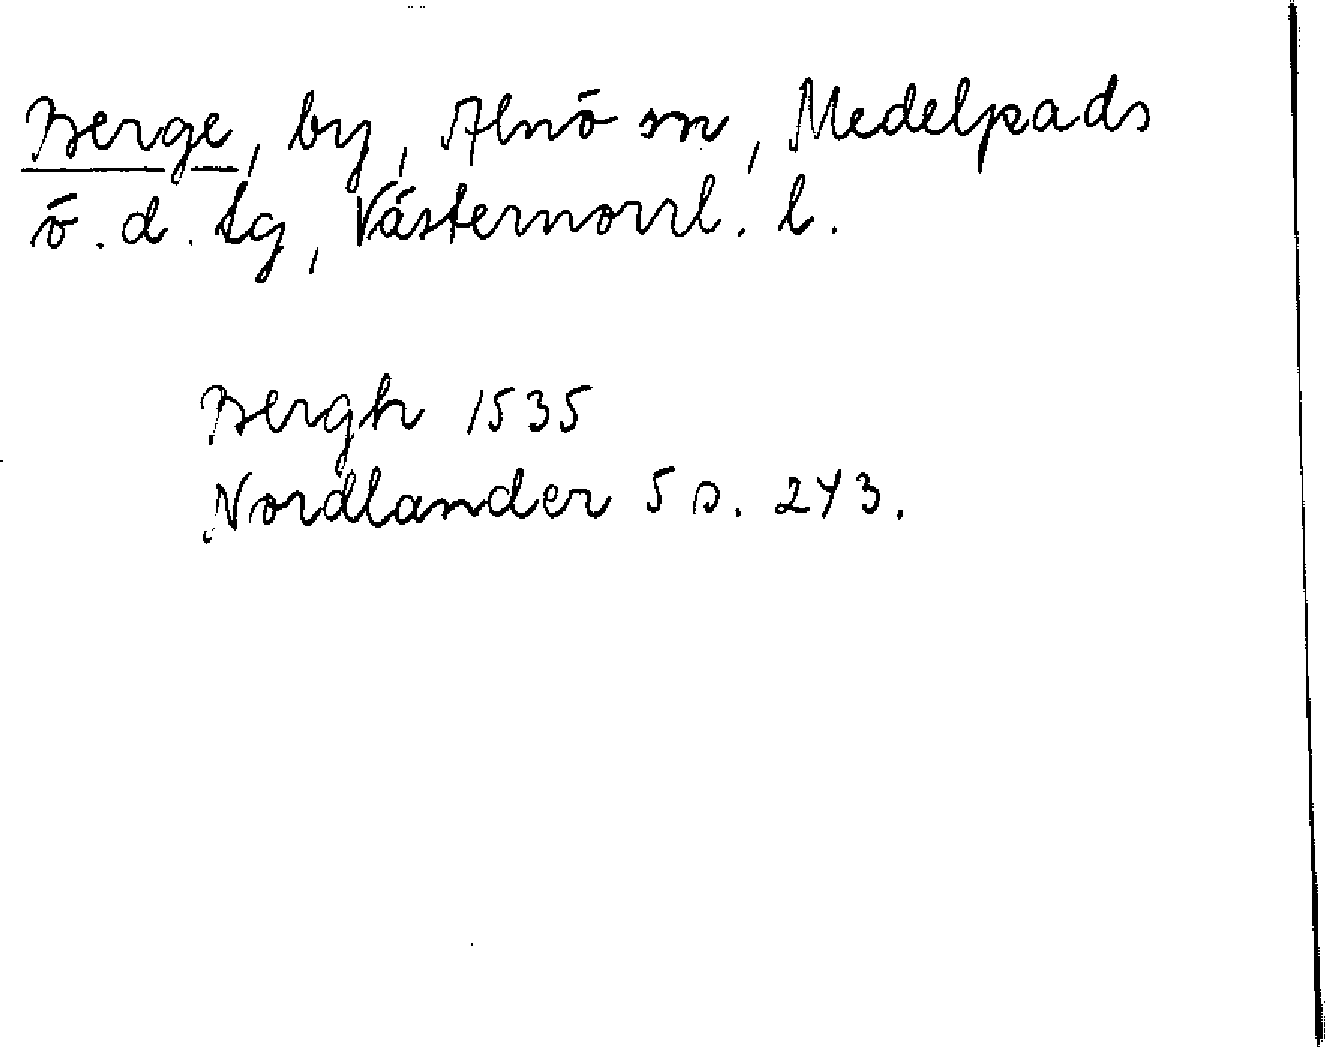 Berge, by, Alnö sn, Medelpads
ö. d. tg, Västernorrl. l.
Bergh 1535
Nordlander 5 s. 243.